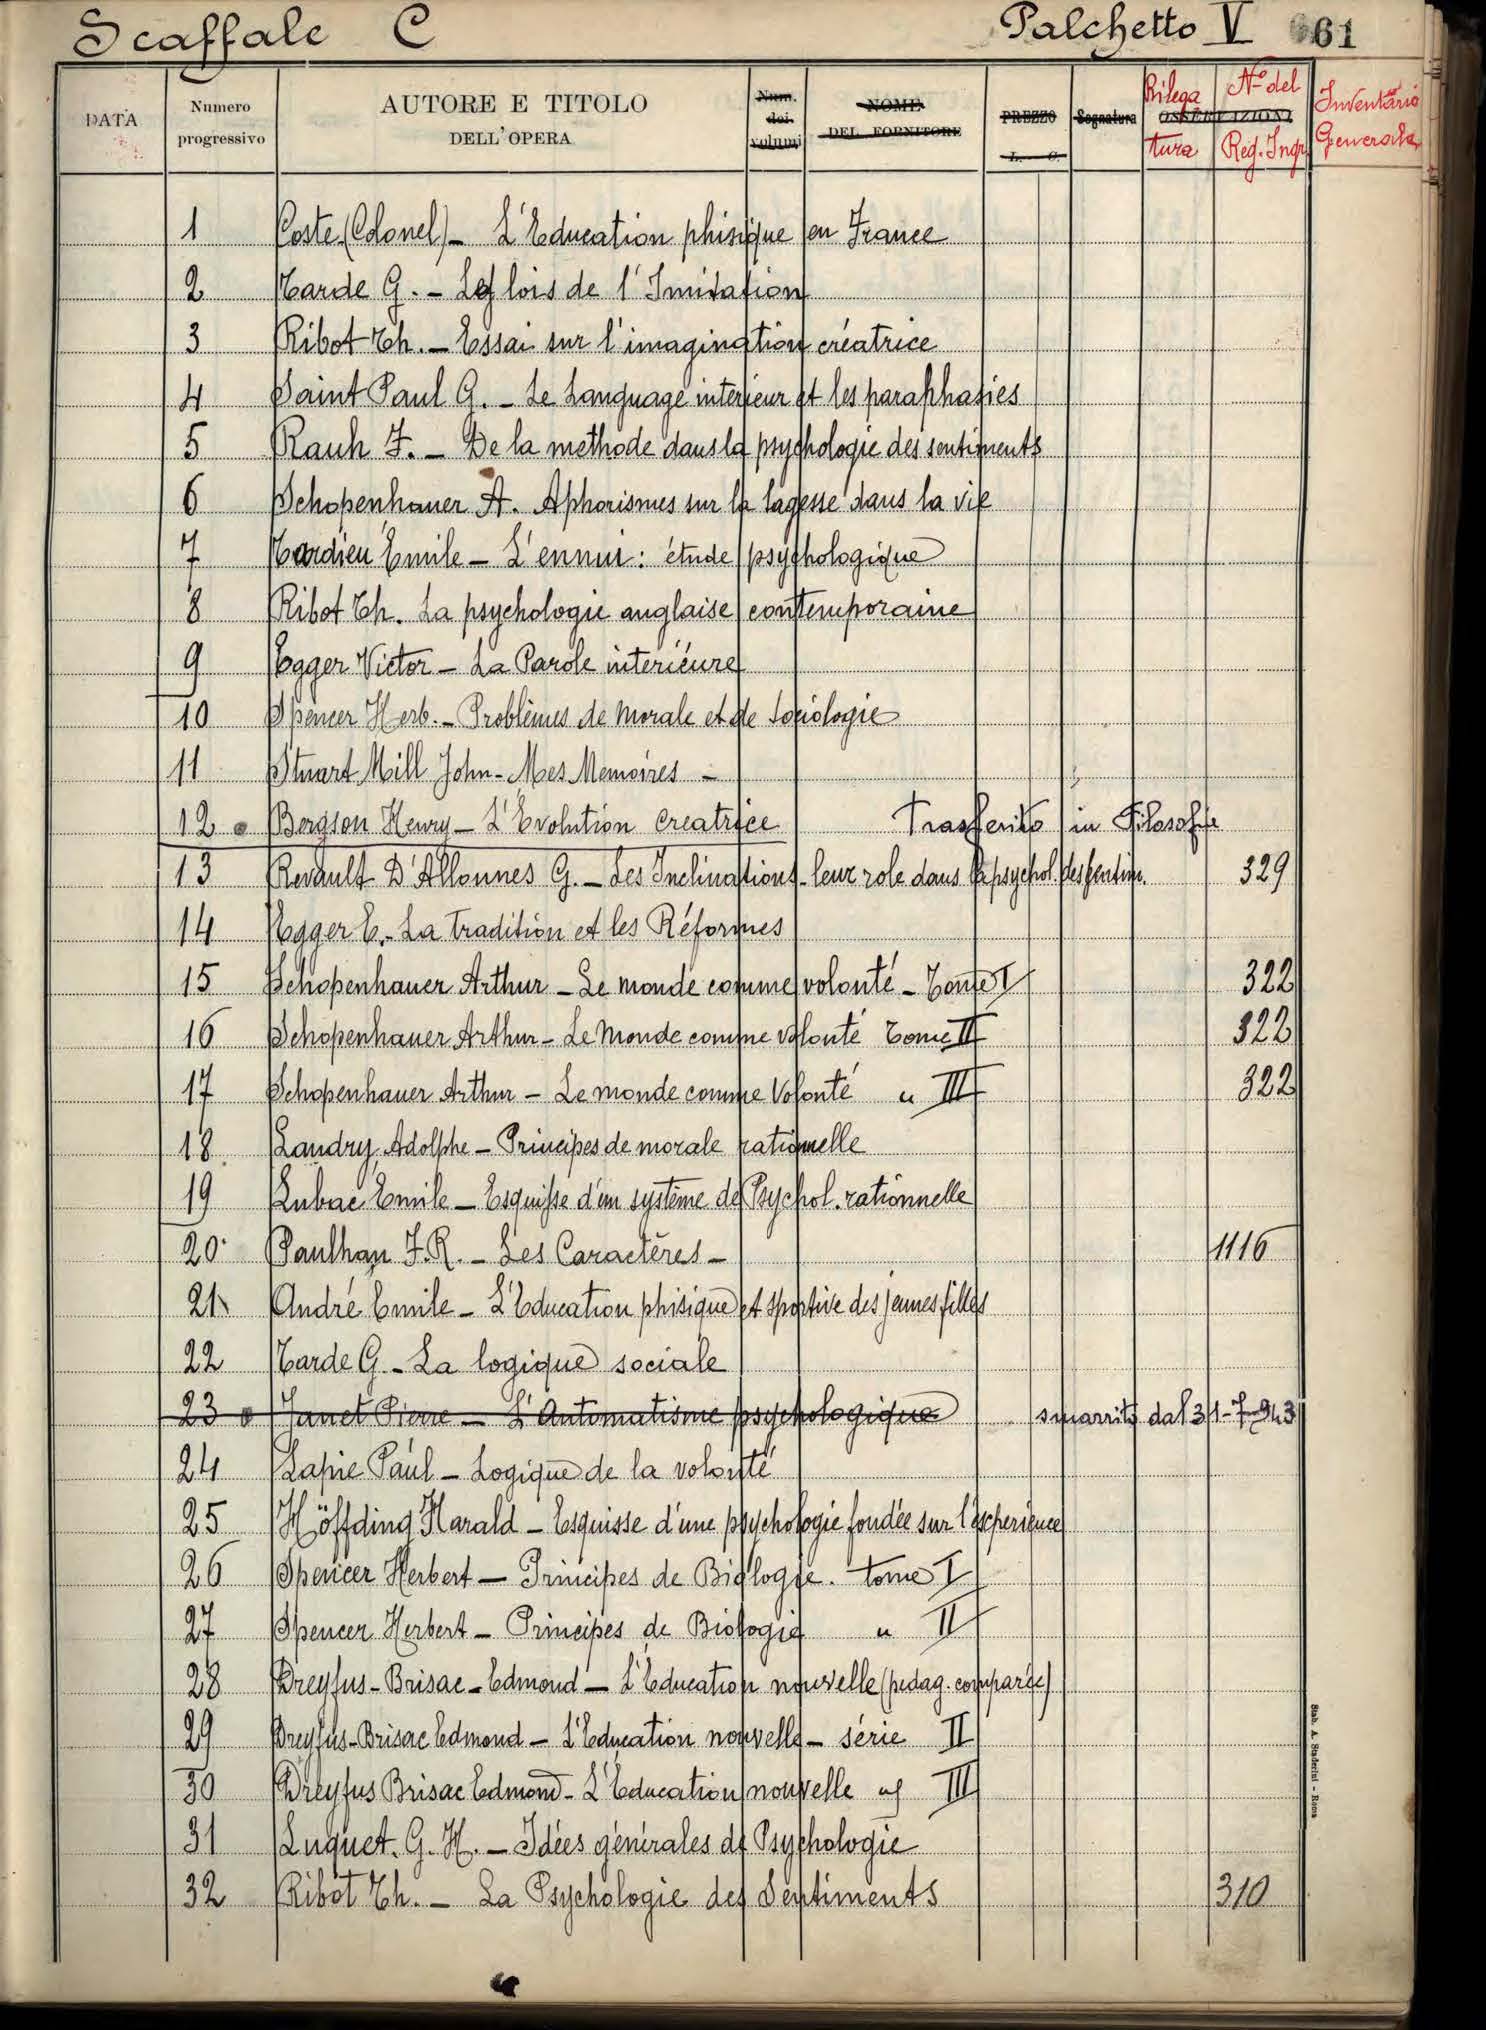 Scaffale C Palchetto V 61
DATA Numero progressivo AUTORE E TITOLO DELL'OPERA Num. dei volumi NOME DEL FORNITORE PREZZO L. C. Segnatura OSSERVAZIONI Rilegatura N° del Reg. Ingr. Inventario Generale
1 Coste (Colonel) – L'Education phisique en France
2 Tarde G. – Les lois de l'Imitation
3 Ribot Th. – Essai sur l'imagination créatrice
4 Saint Paul G. – Le Language intérieur et les paraphasies
5 Rauh F. – De la methode dans la psychologie des sentiments
6 Schopenhauer A. Aphorismes sur la sagesse dans la vie
7 Tardieu Emile – L'ennui: étude psychologique
8 Ribot Th. La psychologie anglaise contemporaine
9 Egger Victor – La Parole interiéure
10 Spencer Herb. – Problèmes de morale et de sociologie
11 Stuart Mill John – Mes Memoires –
12 Bergson Henry – L'Evolution creatrice Trasferito in Filosofia
13 Revault D'Allonnes G. – Les Inclinations – leur role dans la psychol. des sentim. 329
14 Egger E. – La tradition et les Réformes
15 Schopenhauer Arthur – Le monde comme volonté – Tome I 322
16 Schopenhauer Arthur – Le Monde comme volonté Tome II 322
17 Schopenhauer Arthur – Le monde comme Volonté " III 322
18 Landry, Adolphe – Principes de morale rationnelle
19 Lubac Emile – Esquisse d'un système de Psychol. rationnelle
20 Paulhan F.R. – Les Caractères – 1116
21 André Emile – L'Education phisique et sportive des jeunes filles
22 Tarde G. – La logique sociale
23 Janet Pierre – L'Automatisme psychologique smarrito dal 31-7-943
24 Lapie Paul – Logique de la volonté
25 Höffding Harald – Esquisse d'une psychologie fondée sur l'éxperience
26 Spencer Herbert – Principes de Biologie. tome I
27 Spencer Herbert – Principes de Biologie " II
28 Dreyfus-Brisac-Edmond – L'Education nouvelle (pedag. comparée)
29 Dreyfus-Brisac Edmond – L'Education nouvelle – série II
30 Dreyfus Brisac Edmond – L'Education nouvelle " III
31 Luquet. G. H. – Idées générales de Psychologie
32 Ribot Th. – La Psychologie des Sentiments 310
Stab. A. Staderini - Roma